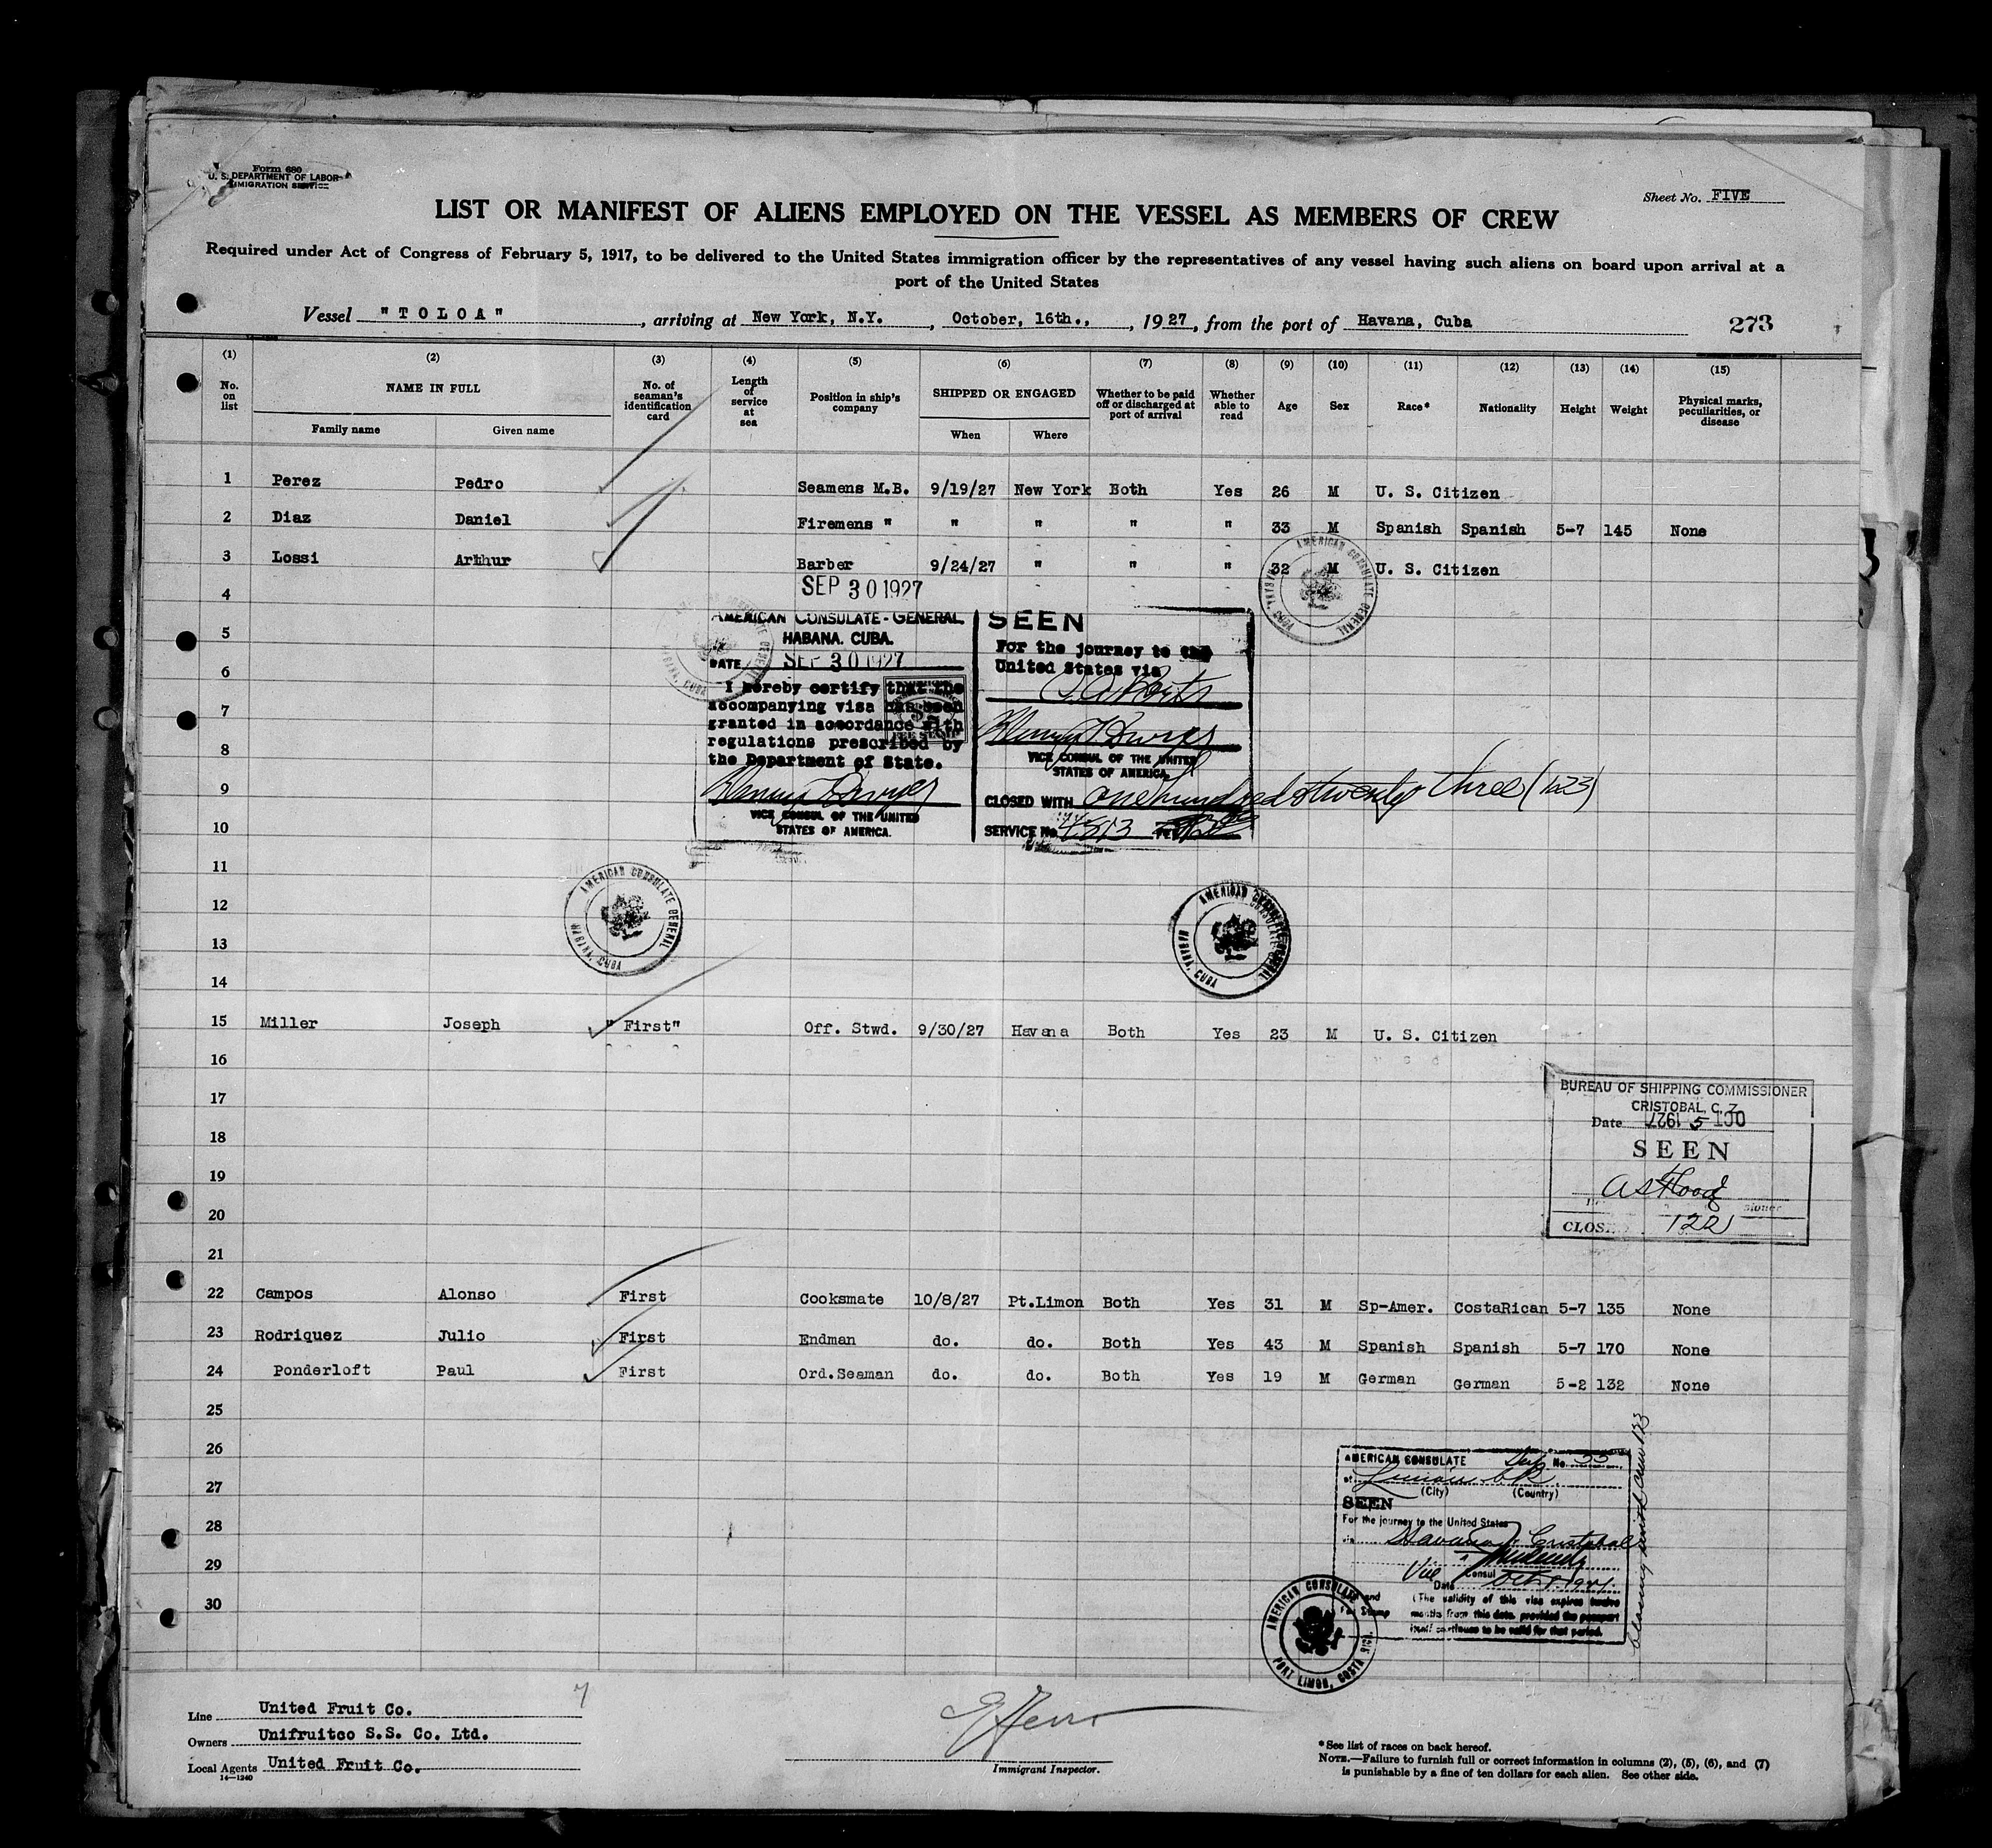 Form 680
U. S. DEPARTMENT OF LABOR
IMMIGRATION SERVICE
Sheet No. FIVE
LIST OR MANIFEST OF ALIENS EMPLOYED ON THE VESSEL AS MEMBERS OF CREW
Required under Act of Congress of February 5, 1917, to be delivered to the United States immigration officer by the representatives of any vessel having such aliens on board upon arrival at a
port of the United States
Vessel "TOLOA", arriving at New York, N.Y., October, 16th., 1927, from the port of Havana, Cuba 273
(1) (2) (3) (4) (5) (6) (7) (8) (9) (10) (11) (12) (13) (14) (15)
No. on list NAME IN FULL No. of seaman's identification card Length of service at sea Position in ship's company SHIPPED OR ENGAGED Whether to be paid off or discharged at port of arrival Whether able to read Age Sex Race* Nationality Height Weight Physical marks, peculiarities, or disease
Family name Given name When Where
1 Perez Pedro Seamens M.B. 9/19/27 New York Both Yes 26 M U. S. Citizen
2 Diaz Daniel Firemens " " " " " 33 M Spanish Spanish 5-7 145 None
3 Lossi Arthur Barber 9/24/27 " " " 32 M U. S. Citizen
4 SEP 30 1927
AMERICAN CONSULATE GENERAL HABANA, CUBA
5
6
7
8
9
10
AMERICAN CONSULATE-GENERAL
HABANA. CUBA.
DATE SEP 30 1927
I hereby certify that the
accompanying visa has been
granted in accordance with
regulations prescribed by
the Department of State.
VICE CONSUL OF THE UNITED
STATES OF AMERICA.
SEEN
For the journey to the
United States via
VICE CONSUL OF THE UNITED
STATES OF AMERICA
CLOSED WITH one hundred & twenty three (123)
SERVICE No.
11
12
13
14
AMERICAN CONSULATE GENERAL HABANA, CUBA
AMERICAN CONSULATE GENERAL HABANA, CUBA
15 Miller Joseph "First" Off. Stwd. 9/30/27 Havana Both Yes 23 M U. S. Citizen
16
17
18
19
20
21
BUREAU OF SHIPPING COMMISSIONER
CRISTOBAL, C. Z.
Date OCT 5 1927
SEEN
CLOS 122
22 Campos Alonso First Cooksmate 10/8/27 Pt.Limon Both Yes 31 M Sp-Amer. CostaRican 5-7 135 None
23 Rodriquez Julio First Endman do. do. Both Yes 43 M Spanish Spanish 5-7 170 None
24 Ponderloft Paul First Ord.Seaman do. do. Both Yes 19 M German German 5-2 132 None
25
26
27
28
29
30
AMERICAN CONSULATE No. 33
at Limon C.R.
(City) (Country)
SEEN
For the journey to the United States
via Havana Cristobal
Vice Consul
Date
(The validity of this visa expires twelve
months from this date, provided the passport
itself continues to be valid for that period.
closing with crew 123
AMERICAN CONSULATE PORT LIMON, COSTA RICA
Line United Fruit Co.
Owners Unifruitco S.S. Co. Ltd.
Local Agents United Fruit Co.
14-1240
Immigrant Inspector.
*See list of races on back hereof.
NOTE.—Failure to furnish full or correct information in columns (2), (5), (6), and (7)
is punishable by a fine of ten dollars for each alien. See other side.